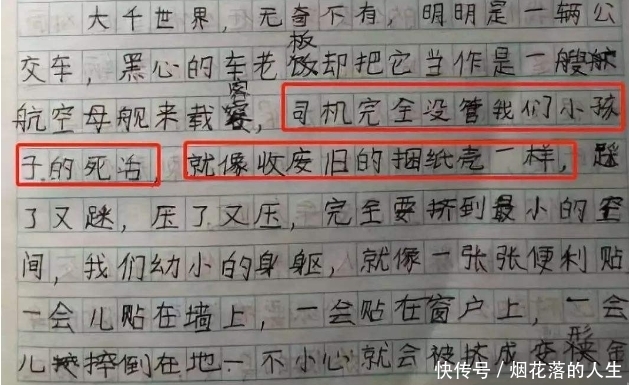 大千世界，无奇不有，明明是一辆公
交车，黑心的车老板却把它当作是一艘
航空母舰来载客，司机完全没管我们小孩
子的死活，就像收废旧的捆纸壳一样，踩
了又踩，压了又压，完全要挤到最小的空
间，我们幼小的身躯，就像一张张便利贴
一会儿贴在墙上，一会贴在窗户上，一会
儿摔倒在地一不小心就会被挤成变形金
快传号/烟花落的人生